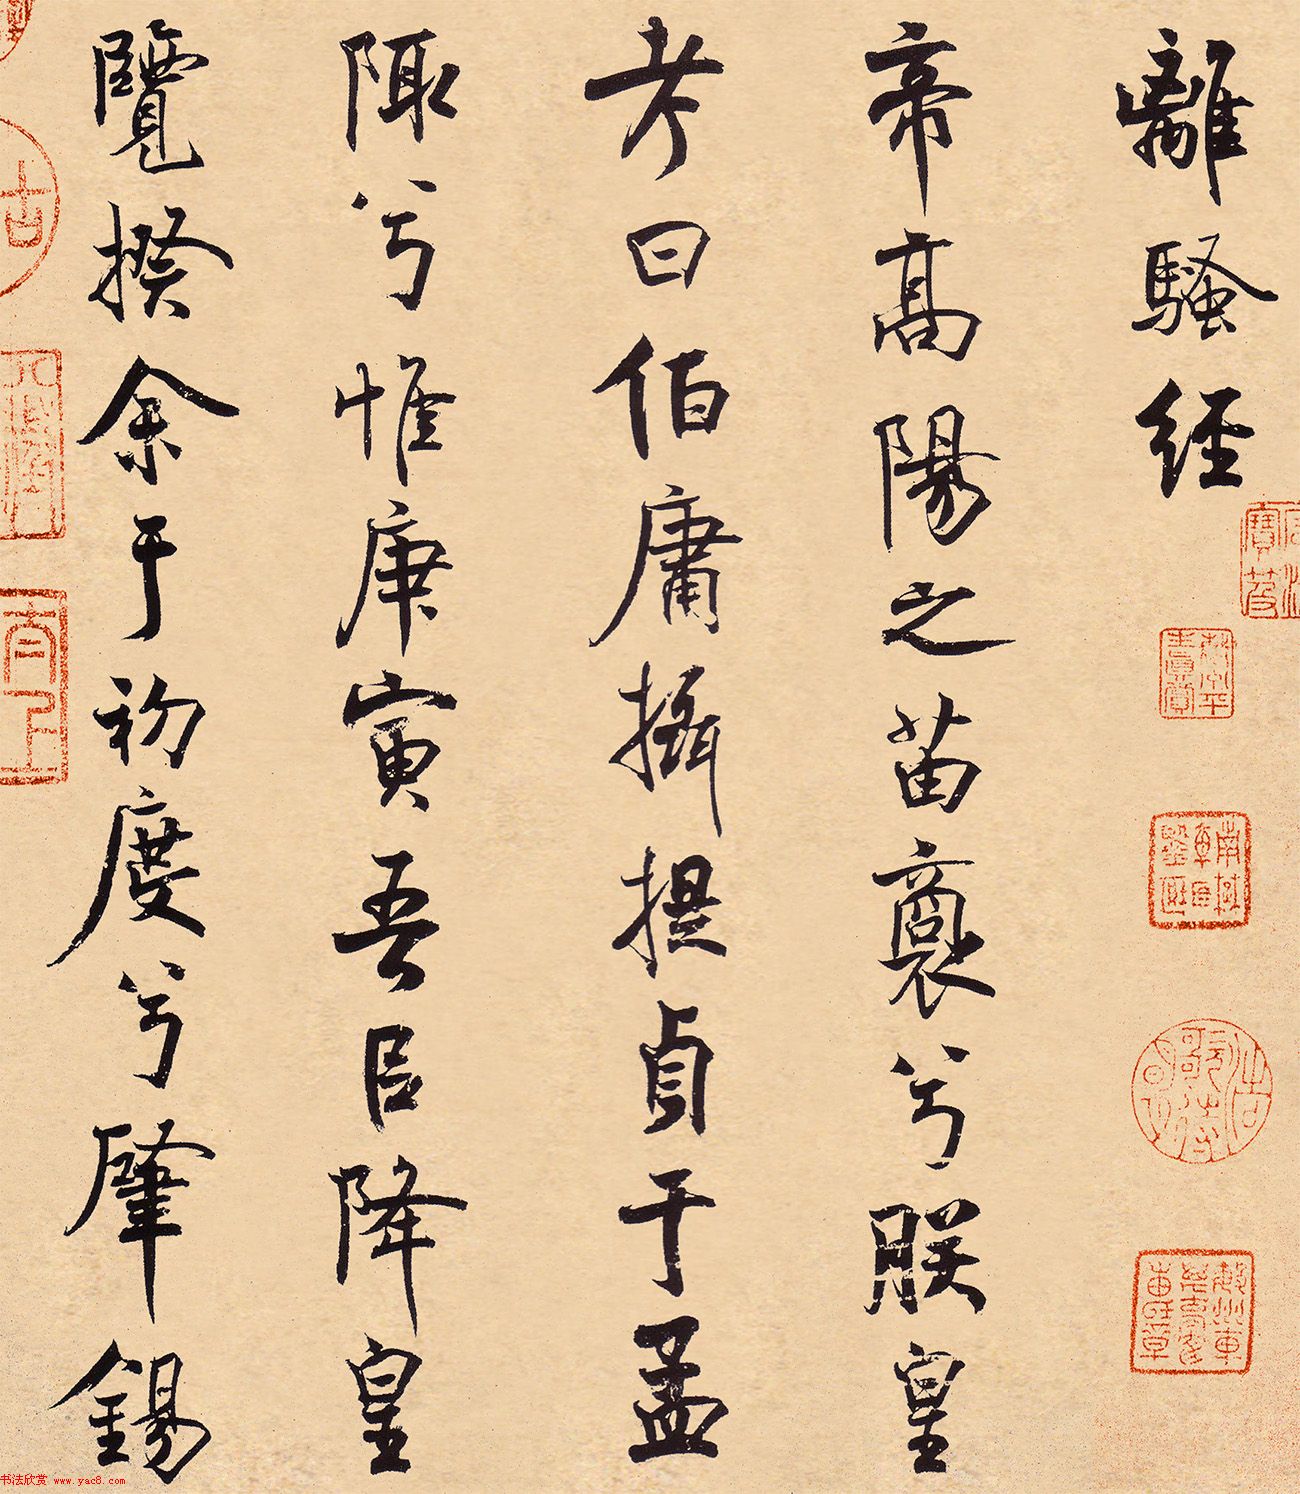 離騷經
帝高陽之苗裔兮朕皇
考曰伯庸攝提貞于孟
陬兮惟庚寅吾㠯降皇
覽揆余于初度兮肇錫
书法欣赏 www.yac8.com